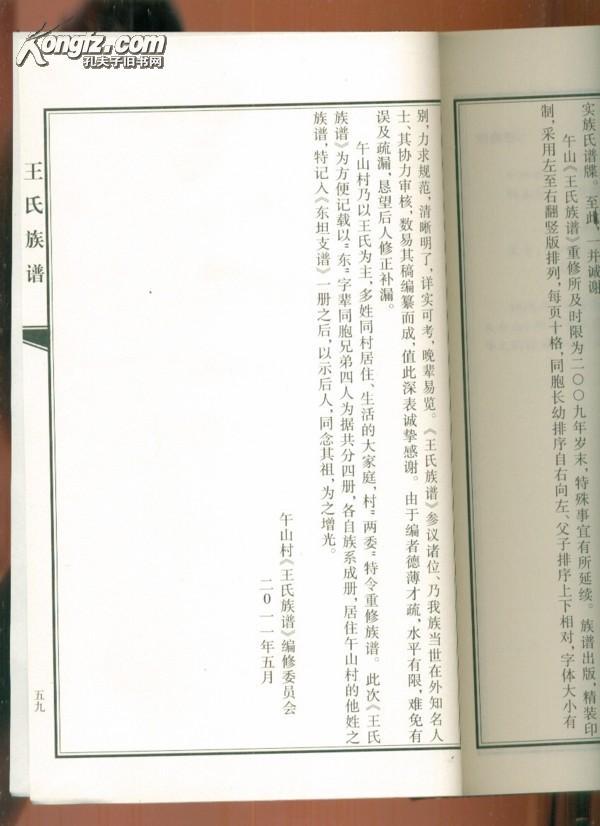 Kongfz.com
孔夫子旧书网
实族氏谱牒。至此,一并诚谢
午山《王氏族谱》重修所及时限为二〇〇九年岁末,特殊事宜有所延续。族谱出版,精装印
制,采用左至右翻竖版排列,每页十格,同胞长幼排序自右向左、父子排序上下相对,字体大小有
别,力求规范,清晰明了,详实可考,晚辈易览。《王氏族谱》参议诸位、乃我族当世在外知名人
士、其协力审核,数易其稿编纂而成,值此深表诚挚感谢。由于编者德薄才疏,水平有限,难免有
误及疏漏,恳望后人修正补漏。
午山村乃以王氏为主,多姓同村居住、生活的大家庭,村“两委”特令重修族谱。此次《王氏
族谱》为方便记载以“东”字辈同胞兄弟四人为据共分四册,各自族系成册,居住午山村的他姓之
族谱,特记入《东坦支谱》一册之后,以示后人,同念其祖,为之增光。
午山村《王氏族谱》编修委员会
二〇一一年五月
王氏族谱
五九